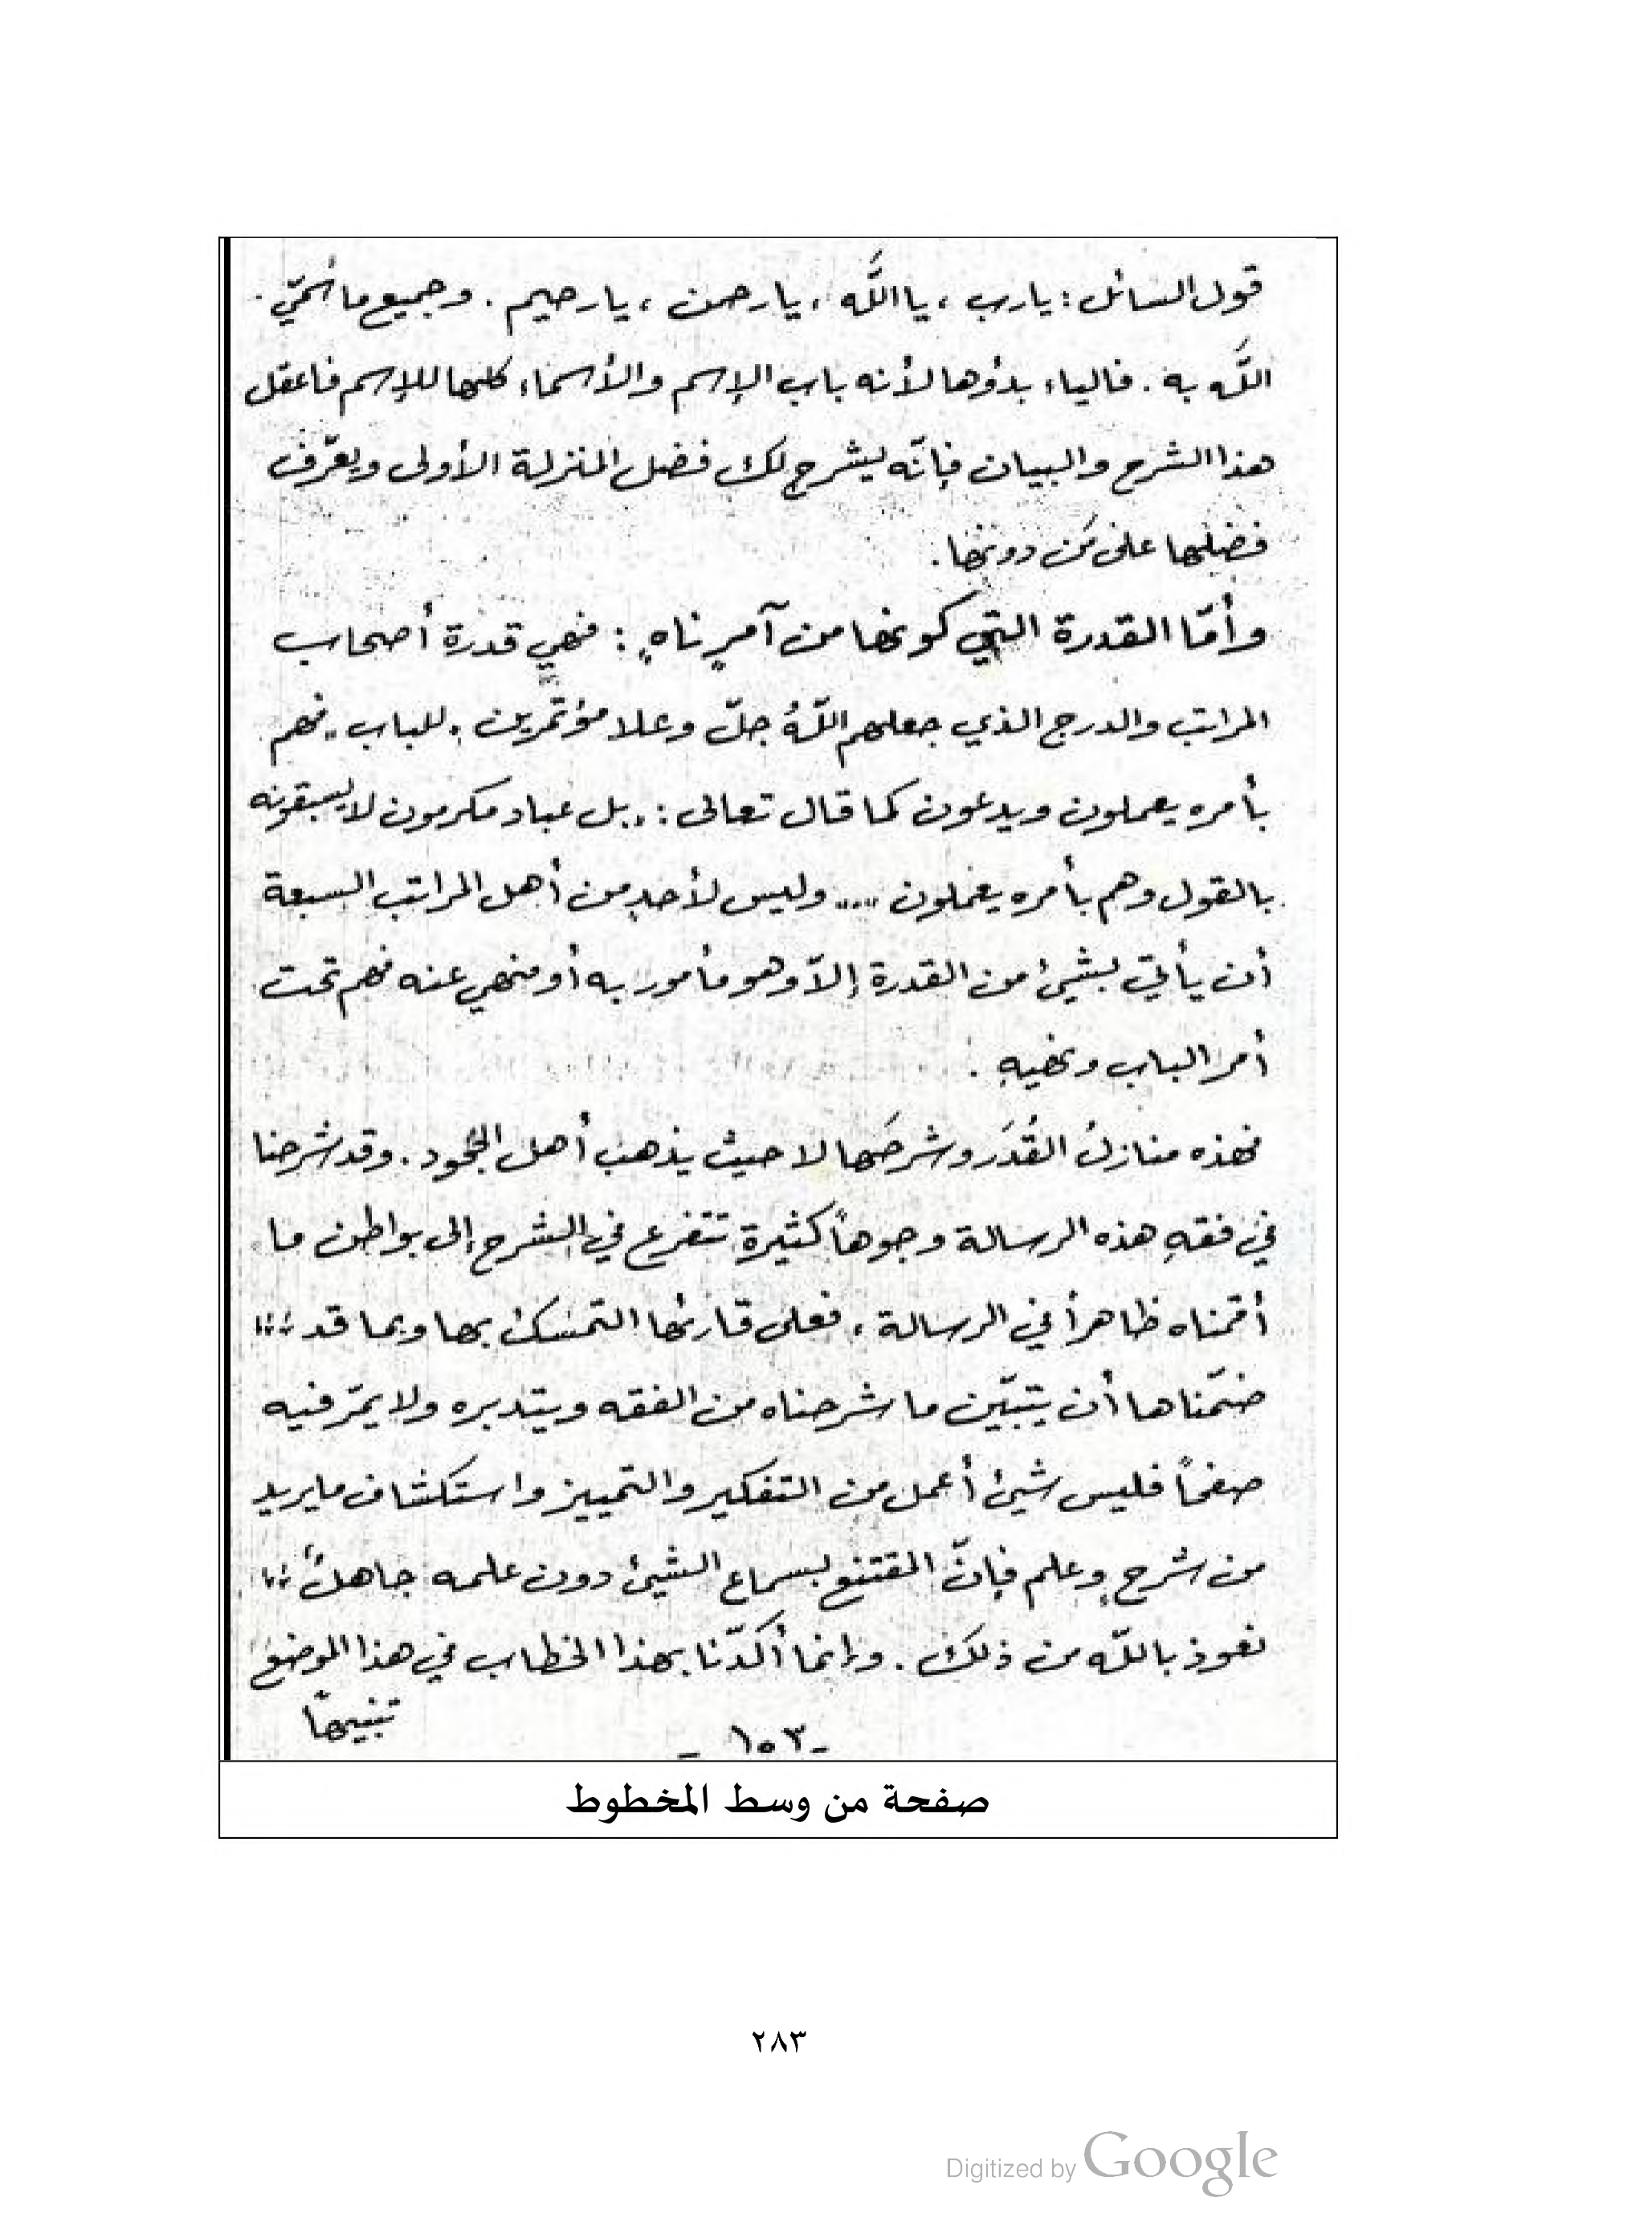 قول السائل : يارب ، يا الله ، يا رحمن ، يا رحيم . وجميع ما سُمّي
الله به . فالياء بدؤها لأنه باب الإسم والأسماء كلها للإسم فاعقل
هذا الشرح والبيان فإنّه يشرح لك فضل المنزلة الأولى ويعرّف
فضلها على مَن دونها .
وأمّا القدرة التي كونها من آمرٍ ناهٍ : فهي قدرة أصحاب
المراتب والدرج الذي جعلهم اللّهُ جلّ وعلا مؤتمرين " للباب " فهم
بأمره يعملون ويدعون كما قال تعالى : " بل عباد مكرمون لا يسبقونه
بالقول وهم بأمره يعملون ... " وليس لأحدٍ من أهل المراتب السبعة
أن يأتي بشيئ من القدرة إلاّ وهو مأمور به أو منهي عنه فهم تحت
أمر الباب ونهيهِ .
فهذه منازلُ القُدَر وشرحَها لا حيث يذهب أهل الجُحود . وقد شرحنا
في فقهِ هذه الرسالة وجوهاً كثيرة تتفرع في الشرح إلى بواطن ما
أقمناه ظاهراً في الرسالة ، فعلى قارئها التمسّك بها وبما قد
ضمّناها أن يتبيّن ما شرحناه من الفقه ويتدبره ولا يمّر فيه
صفحاً فليس شيئ أعمل من التفكير والتمييز واستكشاف ما يريد
من شرحٍ وعلم فإنّ المقتنع بسماع الشيئ دون علمه جاهلٌ
نعوذ بالله من ذلك . وإنما أكدّنا بهذا الخطاب في هذا الموضع
تنبيهاً
- ١٥٣ -
صفحة من وسط المخطوط
٢٨٣
Digitized by Google